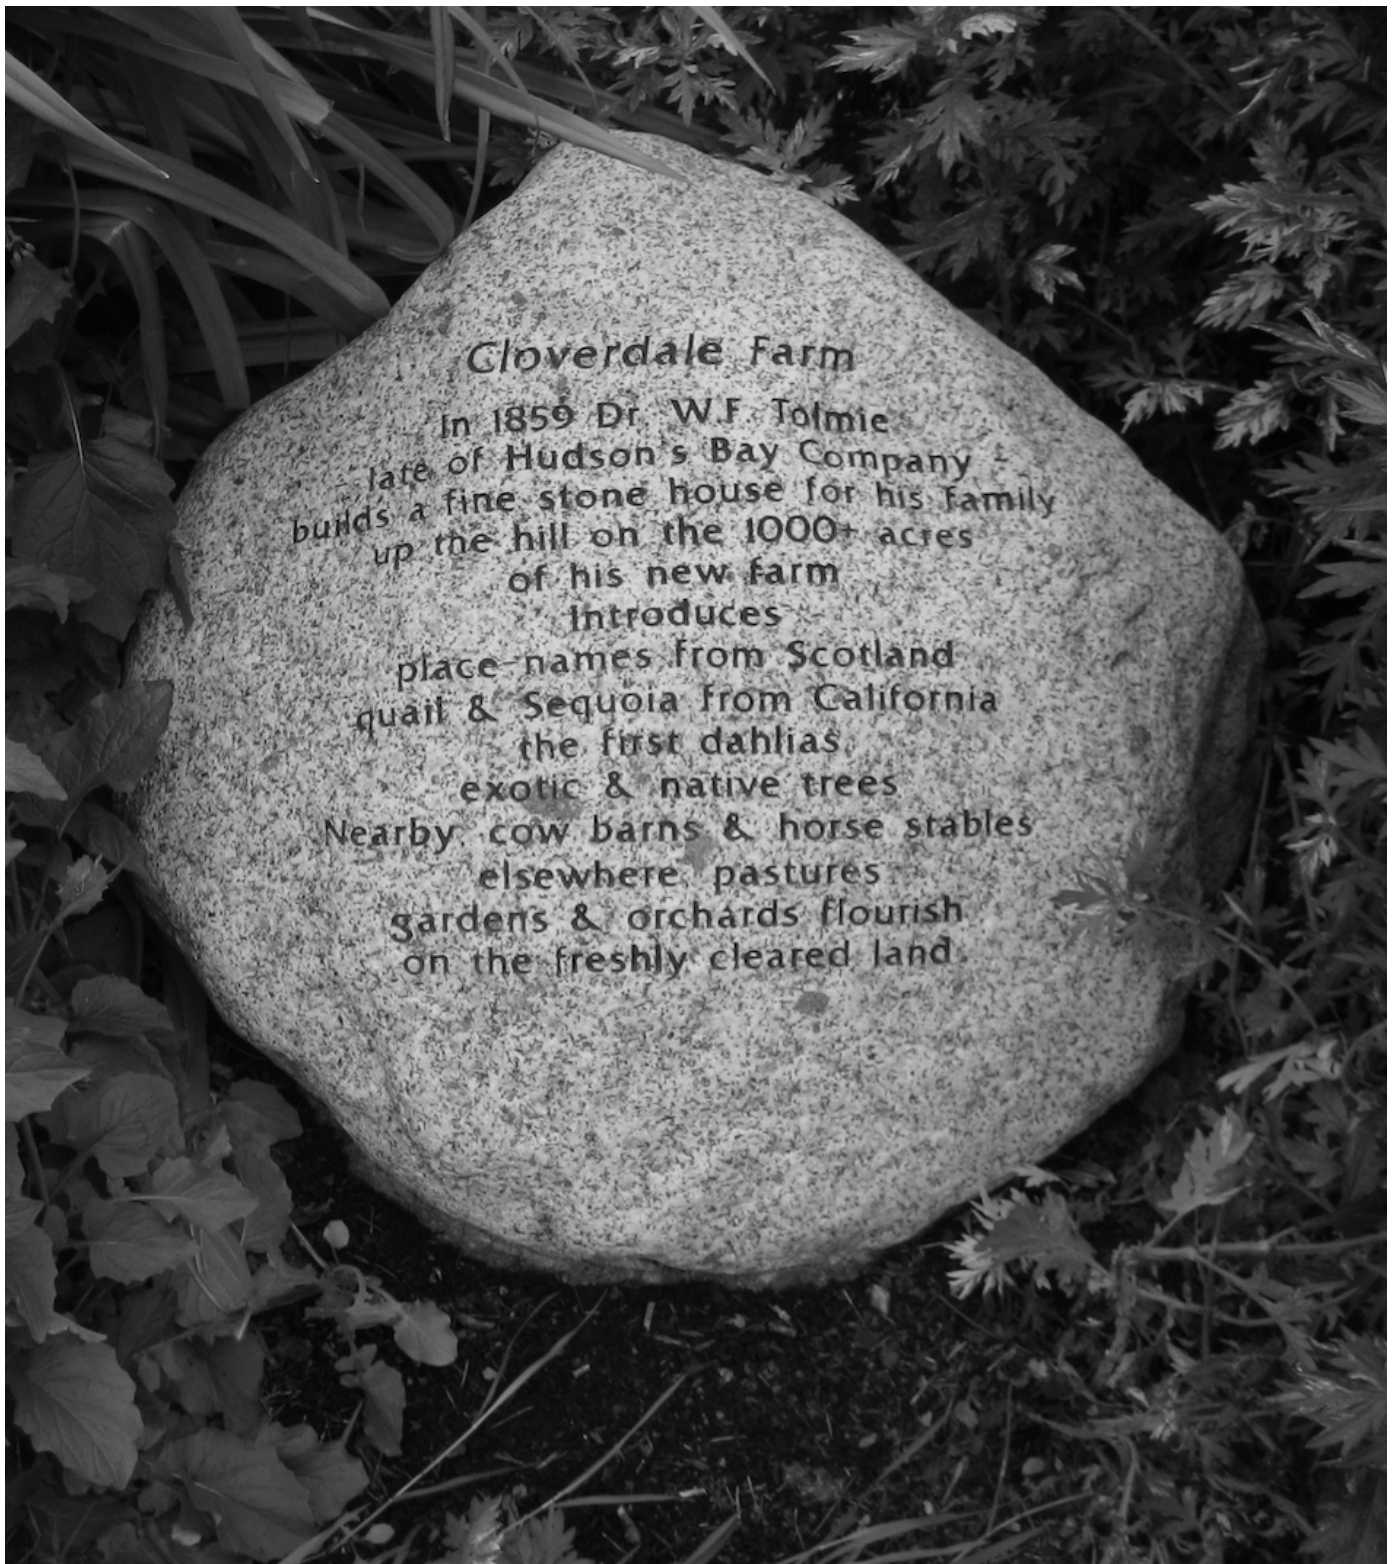 Cloverdale Farm
In 1859 Dr. W.F. Tolmie
- late of Hudson's Bay Company -
builds a fine stone house for his family
up the hill on the 1000+ acres
of his new farm
Introduces
place-names from Scotland
quail & Sequoia from California
the first dahlias,
exotic & native trees
Nearby, cow barns & horse stables
elsewhere, pastures
gardens & orchards flourish
on the freshly cleared land.